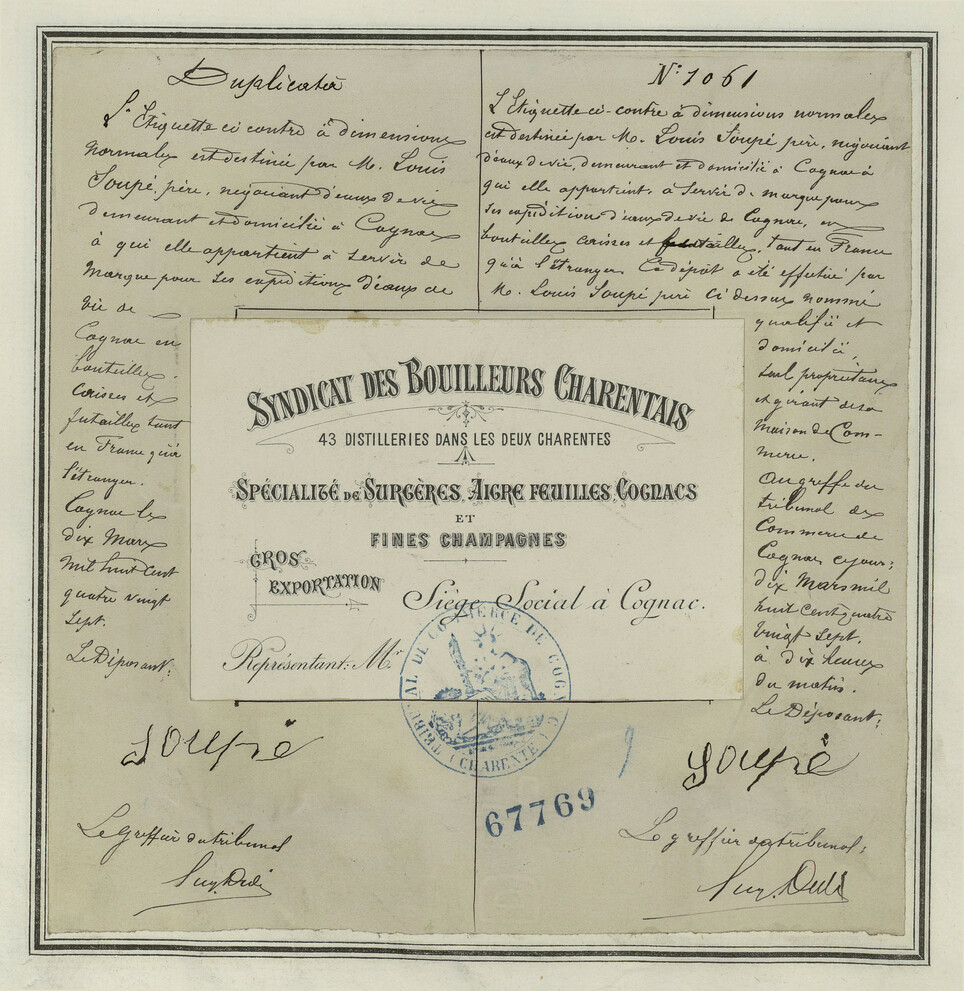 Duplicata
L'Etiquette ci contre à dimensions
normales est destinée par M. Louis
Soupé, père, négociant d'eaux de vie
demeurant et domicilié à Cognac
à qui elle appartient à servir de
marque pour ses expéditions d'eaux de
vie de
Cognac en
bouteilles.
caisses et
futailles tant
en France qu'à
l'étranger.
Cognac le
dix Mars
mil huit cent
quatre vingt
sept.
Le Déposant:
Soupé
Le Greffier du tribunal
N° 1061
L'Etiquette ci-contre à dimensions normales
est destinée par M. Louis Soupé père, négociant
d'eaux de vie, demeurant et domicilié à Cognac à
qui elle appartient, à servir de marque pour
ses expéditions d'eaux de vie de Cognac, en
bouteilles caisses et futailles, tant en France
qu'à l'étranger. Ce dépôt a été effectué par
M. Louis Soupé père ci dessus nommé
qualifié et
domicilié,
seul propriétaire
et gérant de sa
maison de Com-
merce.
Au greffe du
tribunal de
Commerce de
Cognac ce jour:
dix Mars mil
huit cent quatre
vingt sept.
à dix heures
du matin.
Le Déposant:
Soupé
Le greffier du tribunal:
SYNDICAT DES BOUILLEURS CHARENTAIS
43 DISTILLERIES DANS LES DEUX CHARENTES
SPÉCIALITÉ DE SURGÈRES, AIGREFEUILLES, COGNACS
ET
FINES CHAMPAGNES
GROS
EXPORTATION
Siège Social à Cognac.
Représentant: Mr
TRIBUNAL DE COMMERCE DE COGNAC
(CHARENTE)
67769